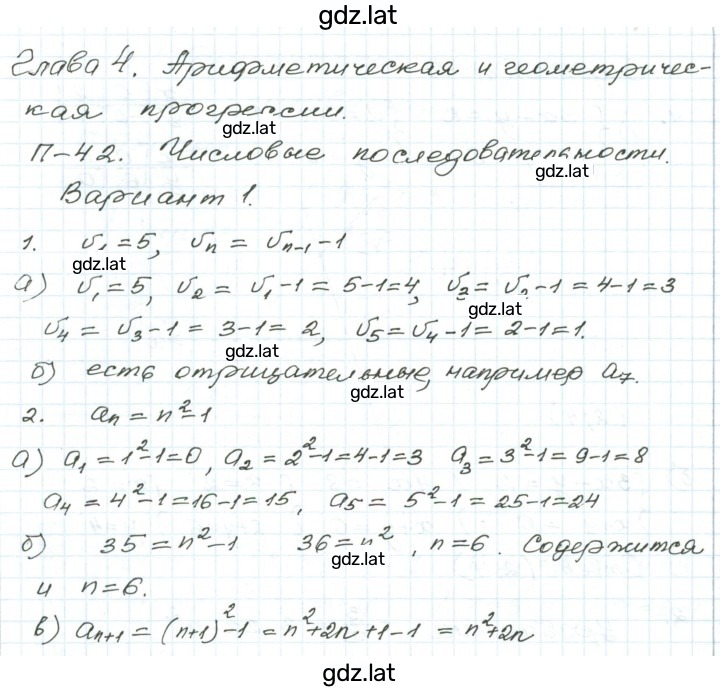 gdz.lat
Глава 4. Арифметическая и геометричес-
кая прогрессии.
gdz.lat
П-42. Числовые последовательности.
gdz.lat
Вариант 1.
1. υ₁ = 5, υₙ = υₙ₋₁ - 1
gdz.lat
а) υ₁ = 5, υ₂ = υ₁ - 1 = 5-1=4, υ₃ = υ₂ - 1 = 4-1=3
gdz.lat
υ₄ = υ₃ - 1 = 3-1= 2, υ₅ = υ₄ - 1 = 2-1=1.
gdz.lat
б) есть отрицательные, например a₇.
gdz.lat
2. aₙ = n²-1
а) a₁ = 1²-1=0, a₂ = 2²-1=4-1=3 a₃ = 3²-1= 9-1=8
a₄ = 4²-1=16-1=15, a₅ = 5²-1 = 25-1=24
б) 35 = n²-1 36 = n², n=6. Содержится
gdz.lat
и n=6.
в) aₙ₊₁ = (n+1)²-1 = n²+2n+1-1 = n²+2n
gdz.lat